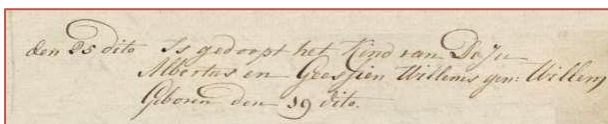 den 25 dito Is gedoopt het Kind van
Albertus en Geesjien Willems gen: Willem
Geboren den 19 dito.